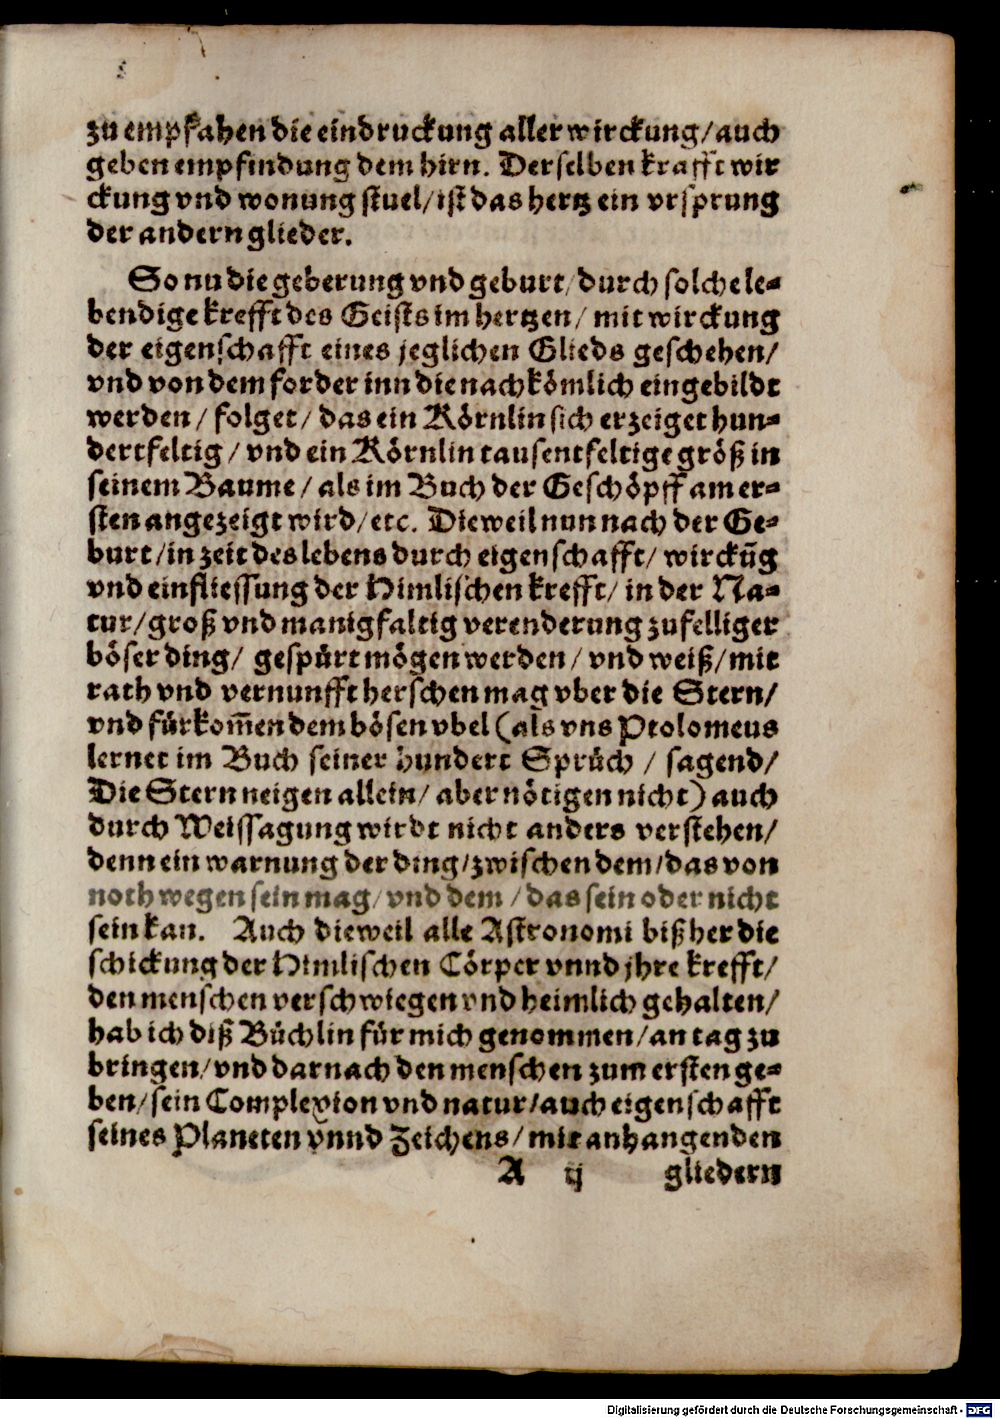 zu empfahen die eindruckung aller wirckung/auch
geben empfindung dem hirn. Derselben krafft wir
ckung vnd wonung stuel/ist das hertz ein vrsprung
der andern glieder.
So nu die geberung vnd geburt/durch solche le-
bendige krefft des Geists im hertzen/ mit wirckung
der eigenschafft eines jeglichen Glieds geschehen/
vnd von dem forder inn die nachkömlich eingebildt
werden/ folget/ das ein Körnlin sich erzeiget hun-
dertfeltig/ vnd ein Körnlin tausentfeltige größ in
seinem Baume/ als im Buch der Geschöpff am er-
sten angezeigt wird/etc. Dieweil nun nach der Ge-
burt/in zeit des lebens durch eigenschafft/ wirckūg
vnd einfliessung der Himlischen krefft/ in der Na-
tur/groß vnd manigfaltig verenderung zufelliger
böser ding/ gespürt mögen werden/ vnd weiß/mit
rath vnd vernunfft herschen mag vber die Stern/
vnd fürkom̄en dem bösen vbel (als vns Ptolomeus
lernet im Buch seiner hundert Sprüch / sagend/
Die Stern neigen allein/ aber nötigen nicht) auch
durch Weissagung wirdt nicht anders verstehen/
denn ein warnung der ding/zwischen dem/das von
noth wegen sein mag/ vnd dem / das sein oder nicht
sein kan. Auch dieweil alle Astronomi bißher die
schickung der Himlischen Cörper vnnd jhre krefft/
den menschen verschwiegen vnd heimlich gehalten/
hab ich diß Büchlin für mich genommen/an tag zu
bringen/vnd darnach den menschen zum ersten ge-
ben/sein Complexion vnd natur/auch eigenschafft
seines Planeten vnnd Zeichens/ mit anhangenden
A ij gliedern
Digitalisierung gefördert durch die Deutsche Forschungsgemeinschaft - DFG